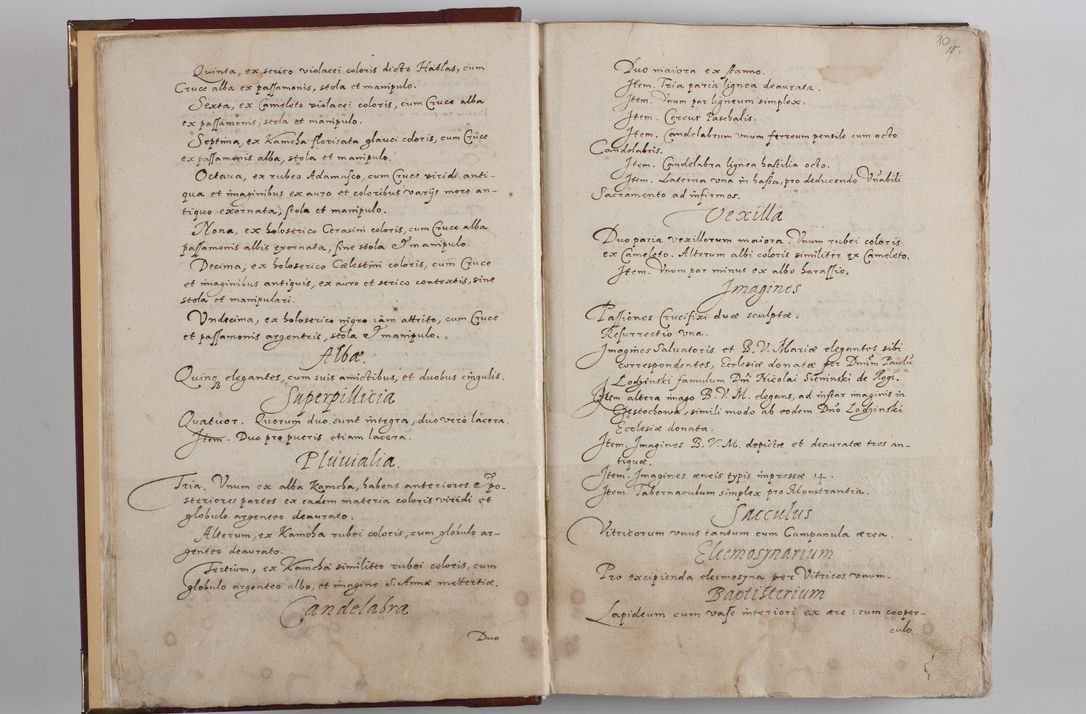 Quinta, ex serico violacei coloris dicto Hatlas, cum
Cruce alba ex passamonis, stola et manipulo.
Sexta, ex Cameleto violacei coloris, cum Cruce alba
ex passamonis, stola et manipulo.
Septima, ex Kamcha florisata glauci coloris, cum Cruce
ex passamonis alba, stola et manipulo.
Octava, ex rubeo Adamasco, cum Cruce viridi anti-
qua et imaginibus ex auro et coloribus varijs more an-
tiquo exornata, stola et manipulo.
Nona, ex holoserico Cerasini coloris, cum Cruce alba
passamonis albis exornata, sine stola et manipulo.
Decima, ex holoserico Cœlestini coloris, cum Cruce
et imaginibus antiquis, ex auro et serico contextis, sine
stola et manipulari.
Undecima, ex holoserico nigro iam attrito, cum Cruce
et passamonis argenteis, stola et manipulo.
Albæ.
Quinq elegantes, cum suis amictibus, et duobus cingulis.
Superpillicia
Quatuor. Quorum duo sunt integra, duo vero lacera.
Item. Duo pro pueris etiam lacera.
Pluuialia.
Tria. Unum ex alba Kamcha, habens anteriores et po-
steriores partes ex eadem materia coloris viridi et
globulo argenteo deaurato.
Alterum, ex Kamcha rubei coloris, cum globulo ar-
genteo deaurato.
Tertium, ex Kamcha similiter rubei coloris, cum
globulo argenteo albo, et imagine S. Annæ mettertiæ.
Candelabra
Duo
10
Duo maiora ex stanno.
Item. Tria paria lignea deaurata.
Item. Unum par ligneum simplex.
Item. Cereus Paschalis.
Item. Candelabrum unum ferreum pensile cum octo
Candelabris.
Item. Candelabra lignea hastilia octo.
Item. Laterna una in hasta, pro deducendo Vnãbili
Sacramento ad infirmos.
Vexilla
Duo paria vexillorum maiora. Unum rubei coloris
ex Cameleto. Alterum albi coloris similiter ex Cameleto.
Item. Unum par minus ex albo harassio.
Imagines
Passiones Crucifixi duæ sculptæ.
Resurrectio una.
Imagines Salvatoris et B. V. Mariæ elegantes sibi
correspondentes, Ecclesiæ donatæ per Dnũm Paulũ
Lodzinski famulum Dnĩ Nicolai Sieninski de Rogi.
Item altera imago B. V. M. elegans, ad instar imaginis in
Czestochova, simili modo ab eodem Dnõ Lodzinski
Ecclesiæ donata.
Item. Imagines B. V. M. depictæ et deauratæ tres an-
tiquæ.
Item. Imagines æneis typis impressæ 14.
Item. Tabernaculum simplex pro Monstrantia.
Sacculus
Vitricorum unus tantum cum Campanula ærea.
Eleemosynarium
Pro excipienda eleemosyna per Vitricos unum.
Baptisterium
Lapideum cum vase interiori ex ære: cum cooper-
culo